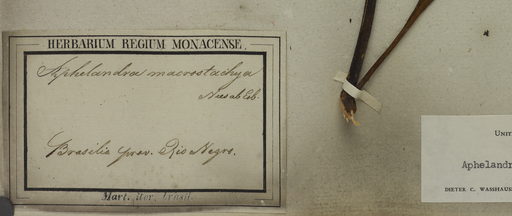 HERBARIUM REGIUM MONACENSE.
Aphelandra macrostachya
Nees ab Es.
Brasilia prov. Rio Negro.
Mart. iter. Brasil.
UNI
Aphelandr
DIETER C. WASSHAUS